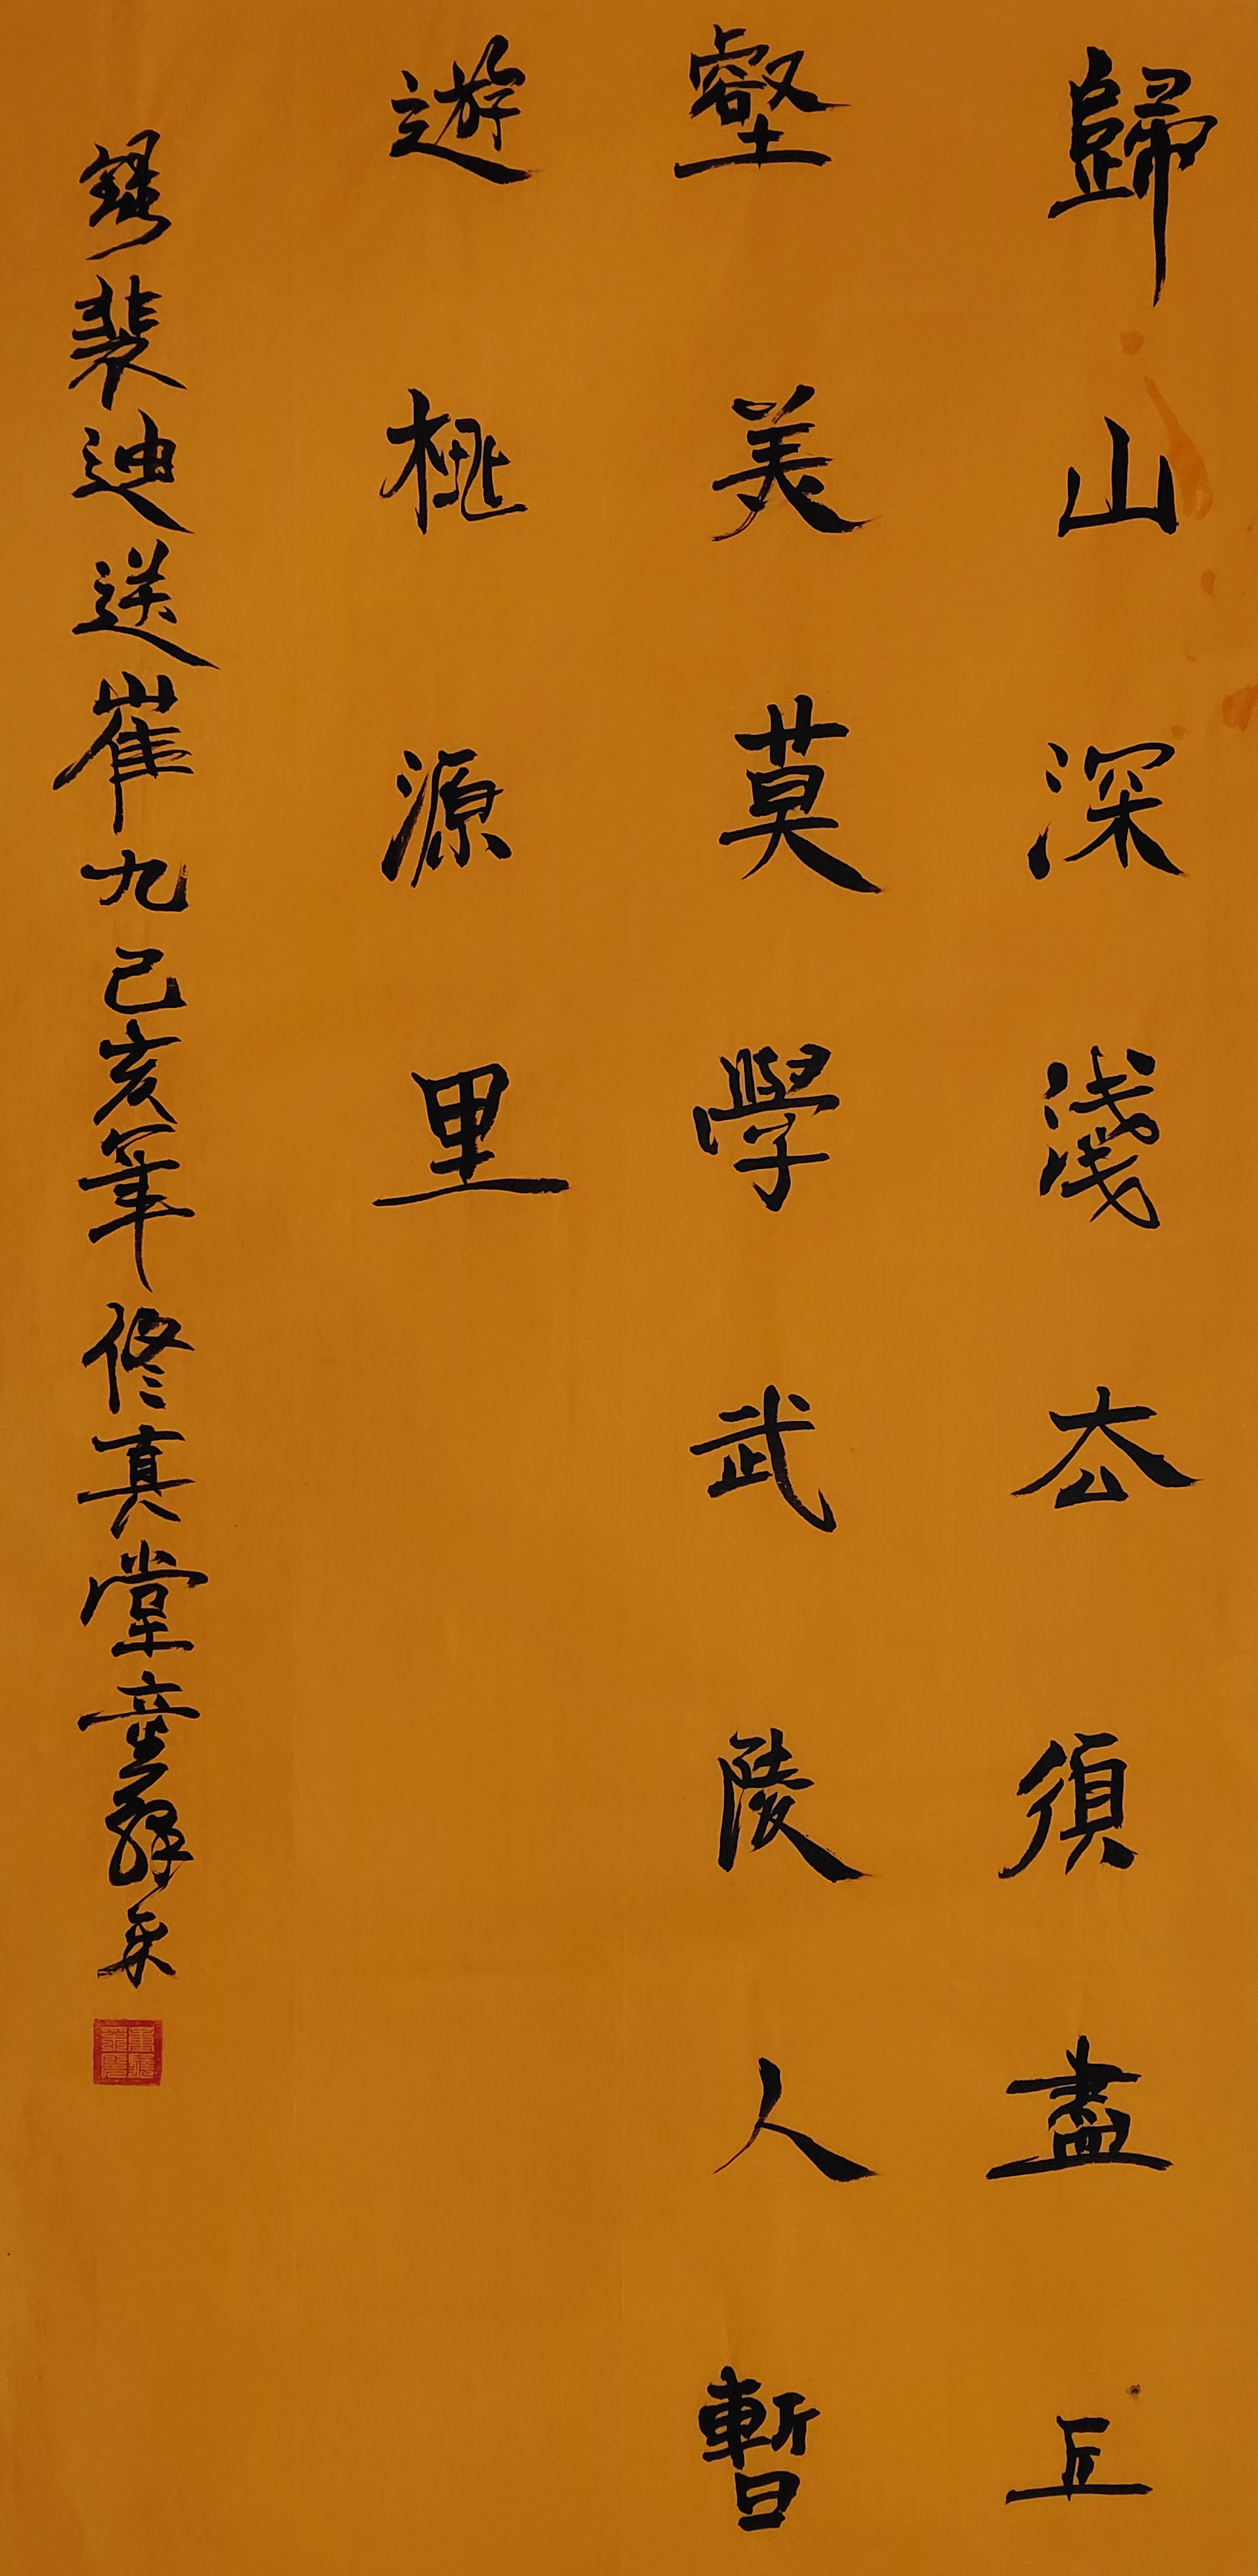 歸山深淺去須盡丘
壑美莫學武陵人暫
遊桃源里
錄裴迪送崔九己亥年修真堂童辉